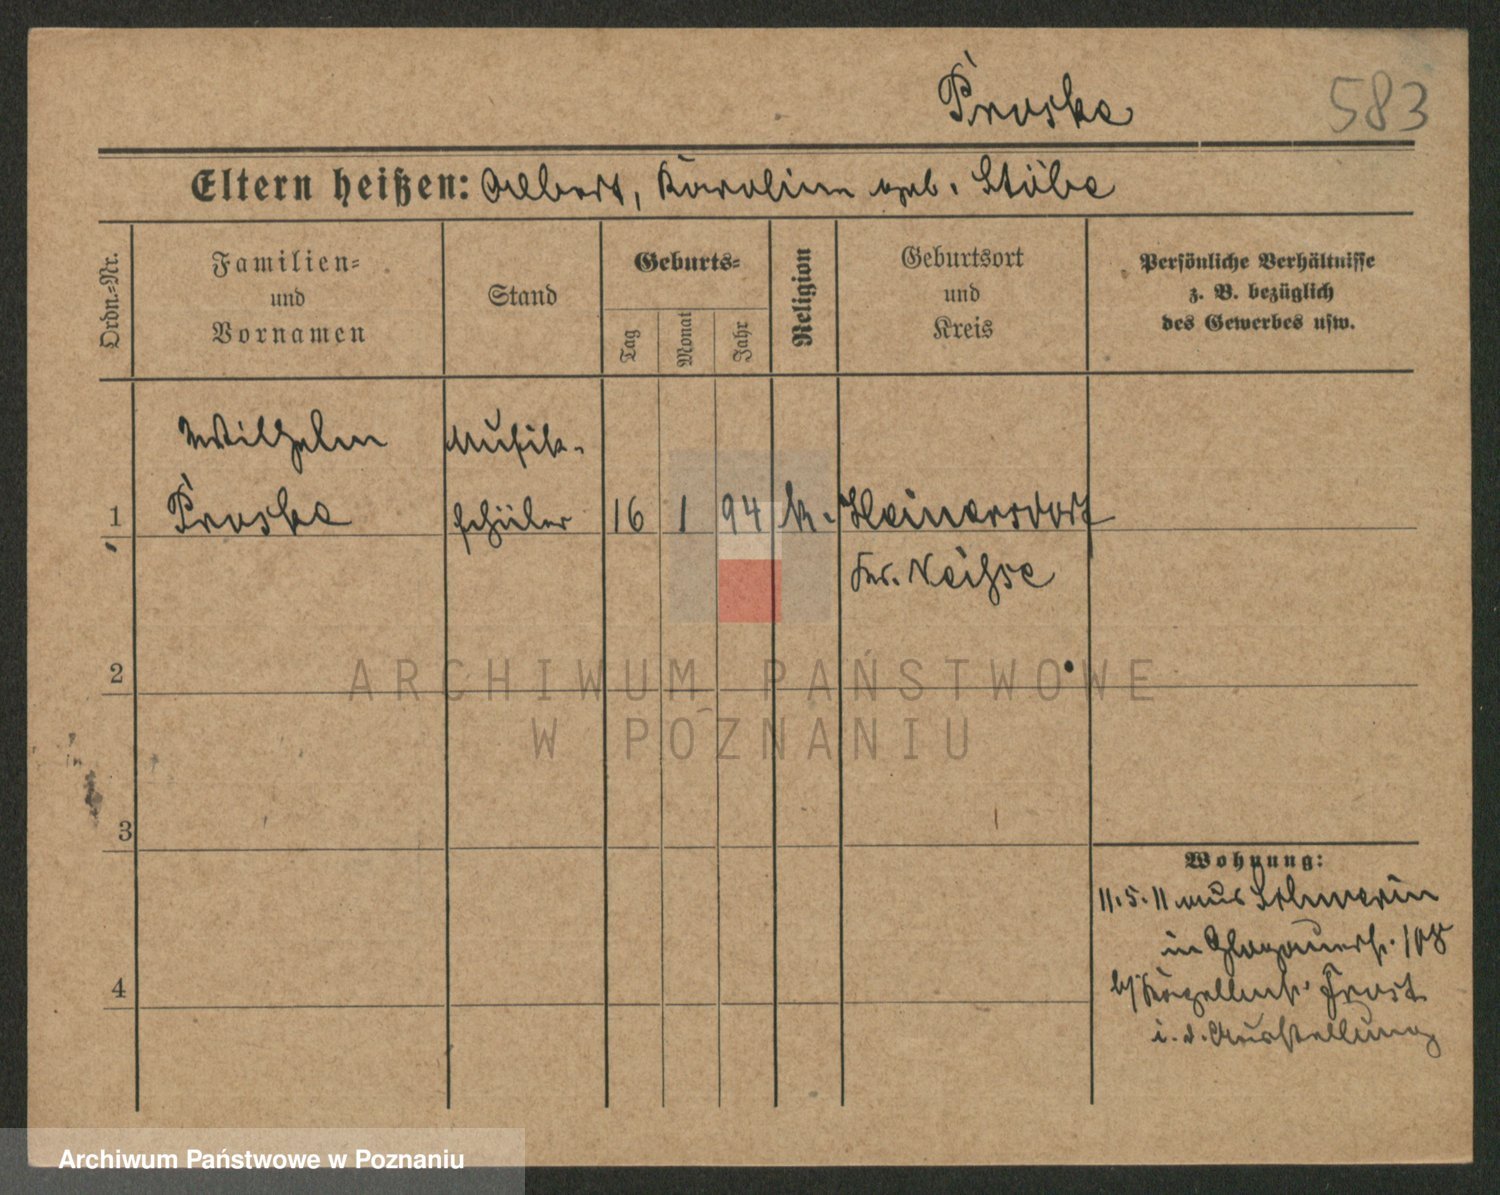 Proske
583
Eltern heißen: Albert, Karoline geb. Stöbe
Ordn.-Nr.
Familien-
und
Vornamen
Stand
Geburts-
Tag
Monat
Jahr
Religion
Geburtsort
und
Kreis
Persönliche Verhältnisse
z. B. bezüglich
des Gewerbes usw.
Wilhelm Musik-
1 Proske schüler 16 1 94 k. Heinersdorf
Kr. Neisse
2
ARCHIWUM PAŃSTWOWE
W POZNANIU
3
4
Wohnung:
11.5.11 aus Schwerin
in Glogauerstr. 108
b/ Kapellmstr. Frost
i. d. Ausstellung
Archiwum Państwowe w Poznaniu